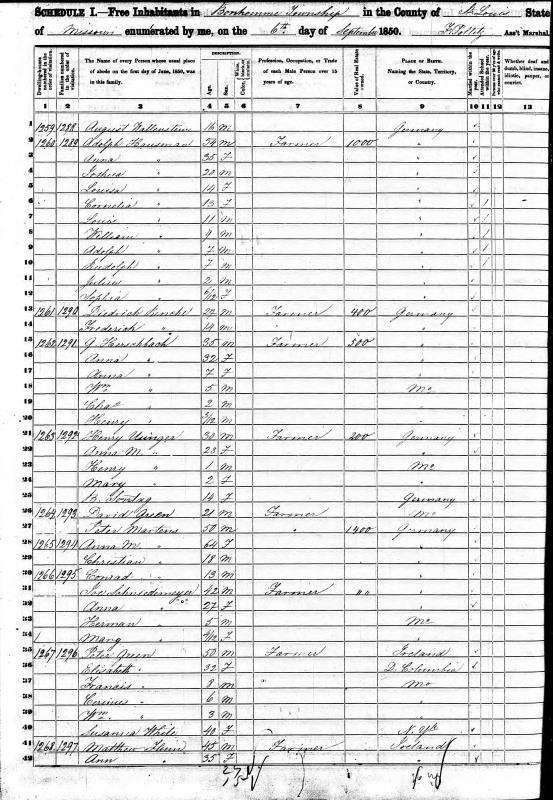 SCHEDULE I.—Free Inhabitants in Bonhomme Township in the County of St. Louis State
of Missouri enumerated by me, on the 6th day of September 1850. Ass't Marshal
Dwelling-houses numbered in the order of visitation.
Families numbered in the order of visitation.
The Name of every Person whose usual place of abode on the first day of June, 1850, was in this family.
DESCRIPTION.
Age.
Sex.
Profession, Occupation, or Trade of each Male Person over 15 years of age.
Value of Real Estate owned.
PLACE OF BIRTH. Naming the State, Territory, or Country.
Married within the year.
Attended School within the year.
Whether deaf and dumb, blind, insane, idiotic, pauper, or convict.
1 2 3 4 5 6 7 8 9 10 11 12 13
1 1259 1288 August Wallenstein 16 M Germany
2 1260 1289 Adolph Hausman 34 M Farmer 1000 "
3 Anna " 35 F "
4 Joshua " 20 M "
5 Louisa " 14 F "
6 Cornelia " 13 F " 1
7 Louis " 11 M " 1
8 William " 9 M " 1
9 Adolph " 7 M " 1
10 Rudolph " 7 M " 1
11 Julius " 2 M "
12 Sophia " 6/12 F "
13 1261 1290 Diedrich 22 M Farmer 400 Germany
14 Frederich " 19 M "
15 1262 1291 G. Herschbach 35 M Farmer 500 "
16 Anna " 32 F "
17 Anna " 7 F "
18 Wm " 5 M Mo
19 Chas " 2 M "
20 Henry " 3/12 M "
21 1263 1292 Henry Usinger 30 M Farmer 200 Germany
22 Anna M. " 23 F "
23 Henry " 1 M Mo
24 Mary " 2 F "
25 B. Sontag 14 F Germany
26 1264 1293 David Green 21 M Farmer Mo
27 Peter Martins 50 M " 1400 Germany
28 1265 1294 Anna M. " 64 F "
29 Christian " 18 M "
30 1266 1295 Conrad " 13 M "
31 Schniedemeyer 42 M Farmer " "
32 Anna " 27 F "
33 Herman " 5 M Mo
34 Mary " F "
35 1267 1296 Peter Green 50 M Farmer Ireland
36 Elisabeth " 32 F D. Columbia
37 Francis " 8 M Mo
38 " 6 M "
39 Wm. " 3 M "
40 Susanna White 40 F N. York
41 1268 1297 Matthew 45 M Farmer Ireland
42 Ann " 35 F "